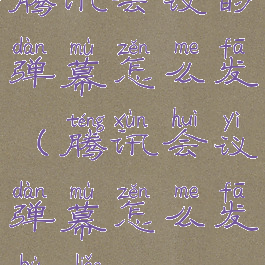 腾讯会议的
dàn mù zěn me fā
弹幕怎么发
téng xùn huì yì
(腾讯会议
dàn mù zěn me fā
弹幕怎么发